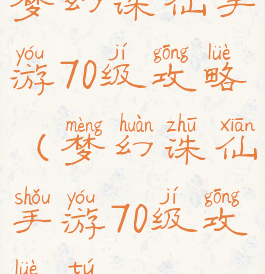 梦幻诛仙手
yóu jí gōng lüè
游70级攻略
mèng huàn zhū xiān
(梦幻诛仙
shǒu yóu jí gōng
手游70级攻
lüè tú